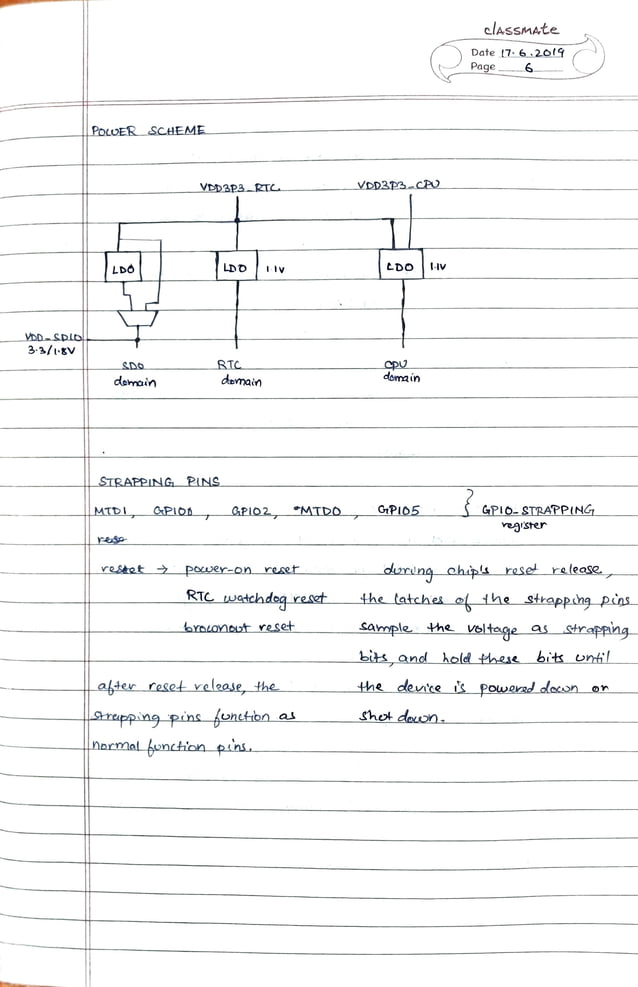 classmate
Date 17.6.2019
Page 6
POWER SCHEME
VDD3P3_RTC VDD3P3_CPU
LDO LDO 1.1V LDO 1.1V
VDD_SDIO
3.3/1.8V
SDO RTC CPU
domain domain domain
STRAPPING PINS
MTDI, GPIO0, GPIO2, *MTDO, GPIO5 } GPIO_STRAPPING
register
rese
reset → power-on reset
RTC watchdog reset
brownout reset
after reset release, the
strapping pins function as
normal function pins.
during chip's reset release,
the latches of the strapping pins
sample the voltage as strapping
bits, and hold these bits until
the device is powered down or
shot down.